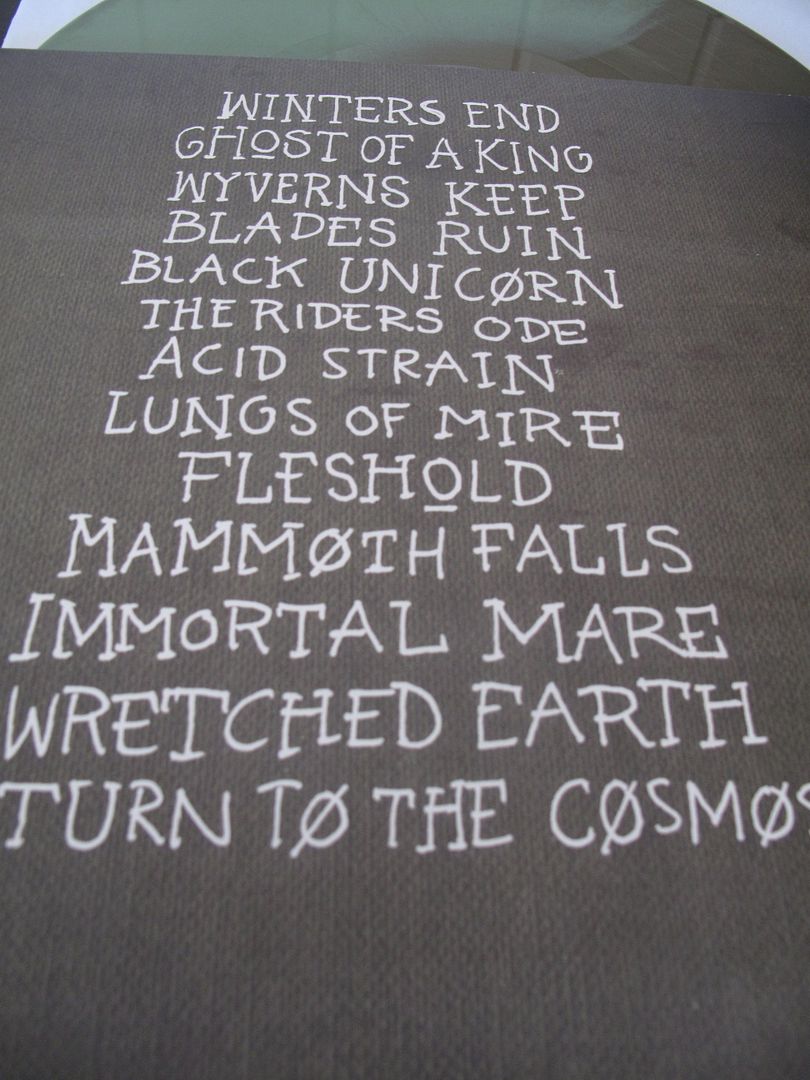 WINTERS END
GHOST OF A KING
WYVERNS KEEP
BLADES RUIN
BLACK UNICØRN
THE RIDERS ODE
ACID STRAIN
LUNGS OF MIRE
FLESHOLD
MAMMØTH FALLS
IMMORTAL MARE
WRETCHED EARTH
TURN TØ THE CØSMØS